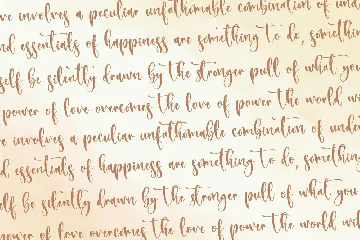 ve involves a peculiar unfathomable combination of unde
nd essentials of happiness are something to do, somethin
self be silently drawn by the stronger pull of what you
power of love overcomes the love of power the world wi
e involves a peculiar unfathomable combination of unde
d essentials of happiness are something to do, something
elf be silently drawn by the stronger pull of what you
power of love overcomes the love of power the world w